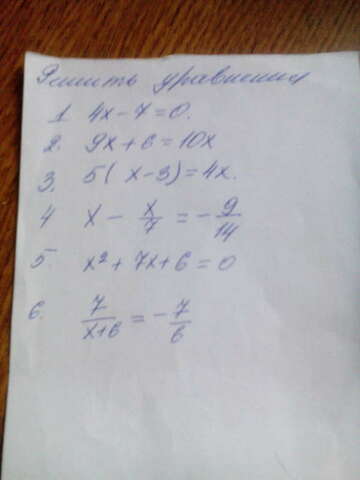 Решить уравнения
1. 4x - 7 = 0.
2. 9x + 6 = 10x
3. 5( x - 3) = 4x.
4 x - x/7 = - 9/14
5. x² + 7x + 6 = 0
6. 7/(x+6) = - 7/6